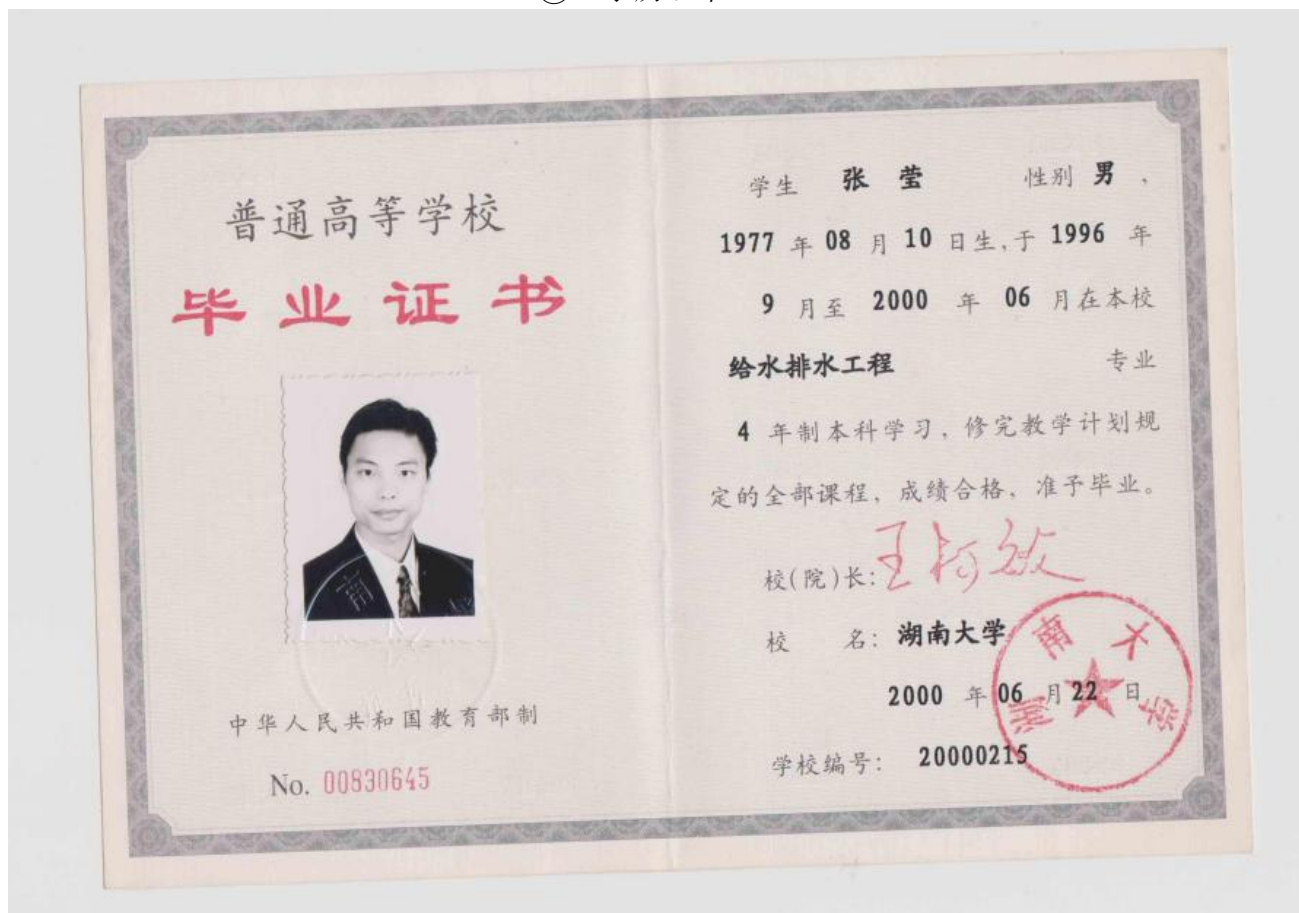 普通高等学校
毕业证书
中华人民共和国教育部制
No. 00830645
学生 张莹 性别 男，
1977 年 08 月 10 日生，于 1996 年
9 月至 2000 年 06 月在本校
给水排水工程 专业
4 年制本科学习，修完教学计划规
定的全部课程，成绩合格，准予毕业。
校(院)长：王柯敏
校 名：湖南大学
湖南大学
2000 年 06 月 22 日
学校编号： 20000215